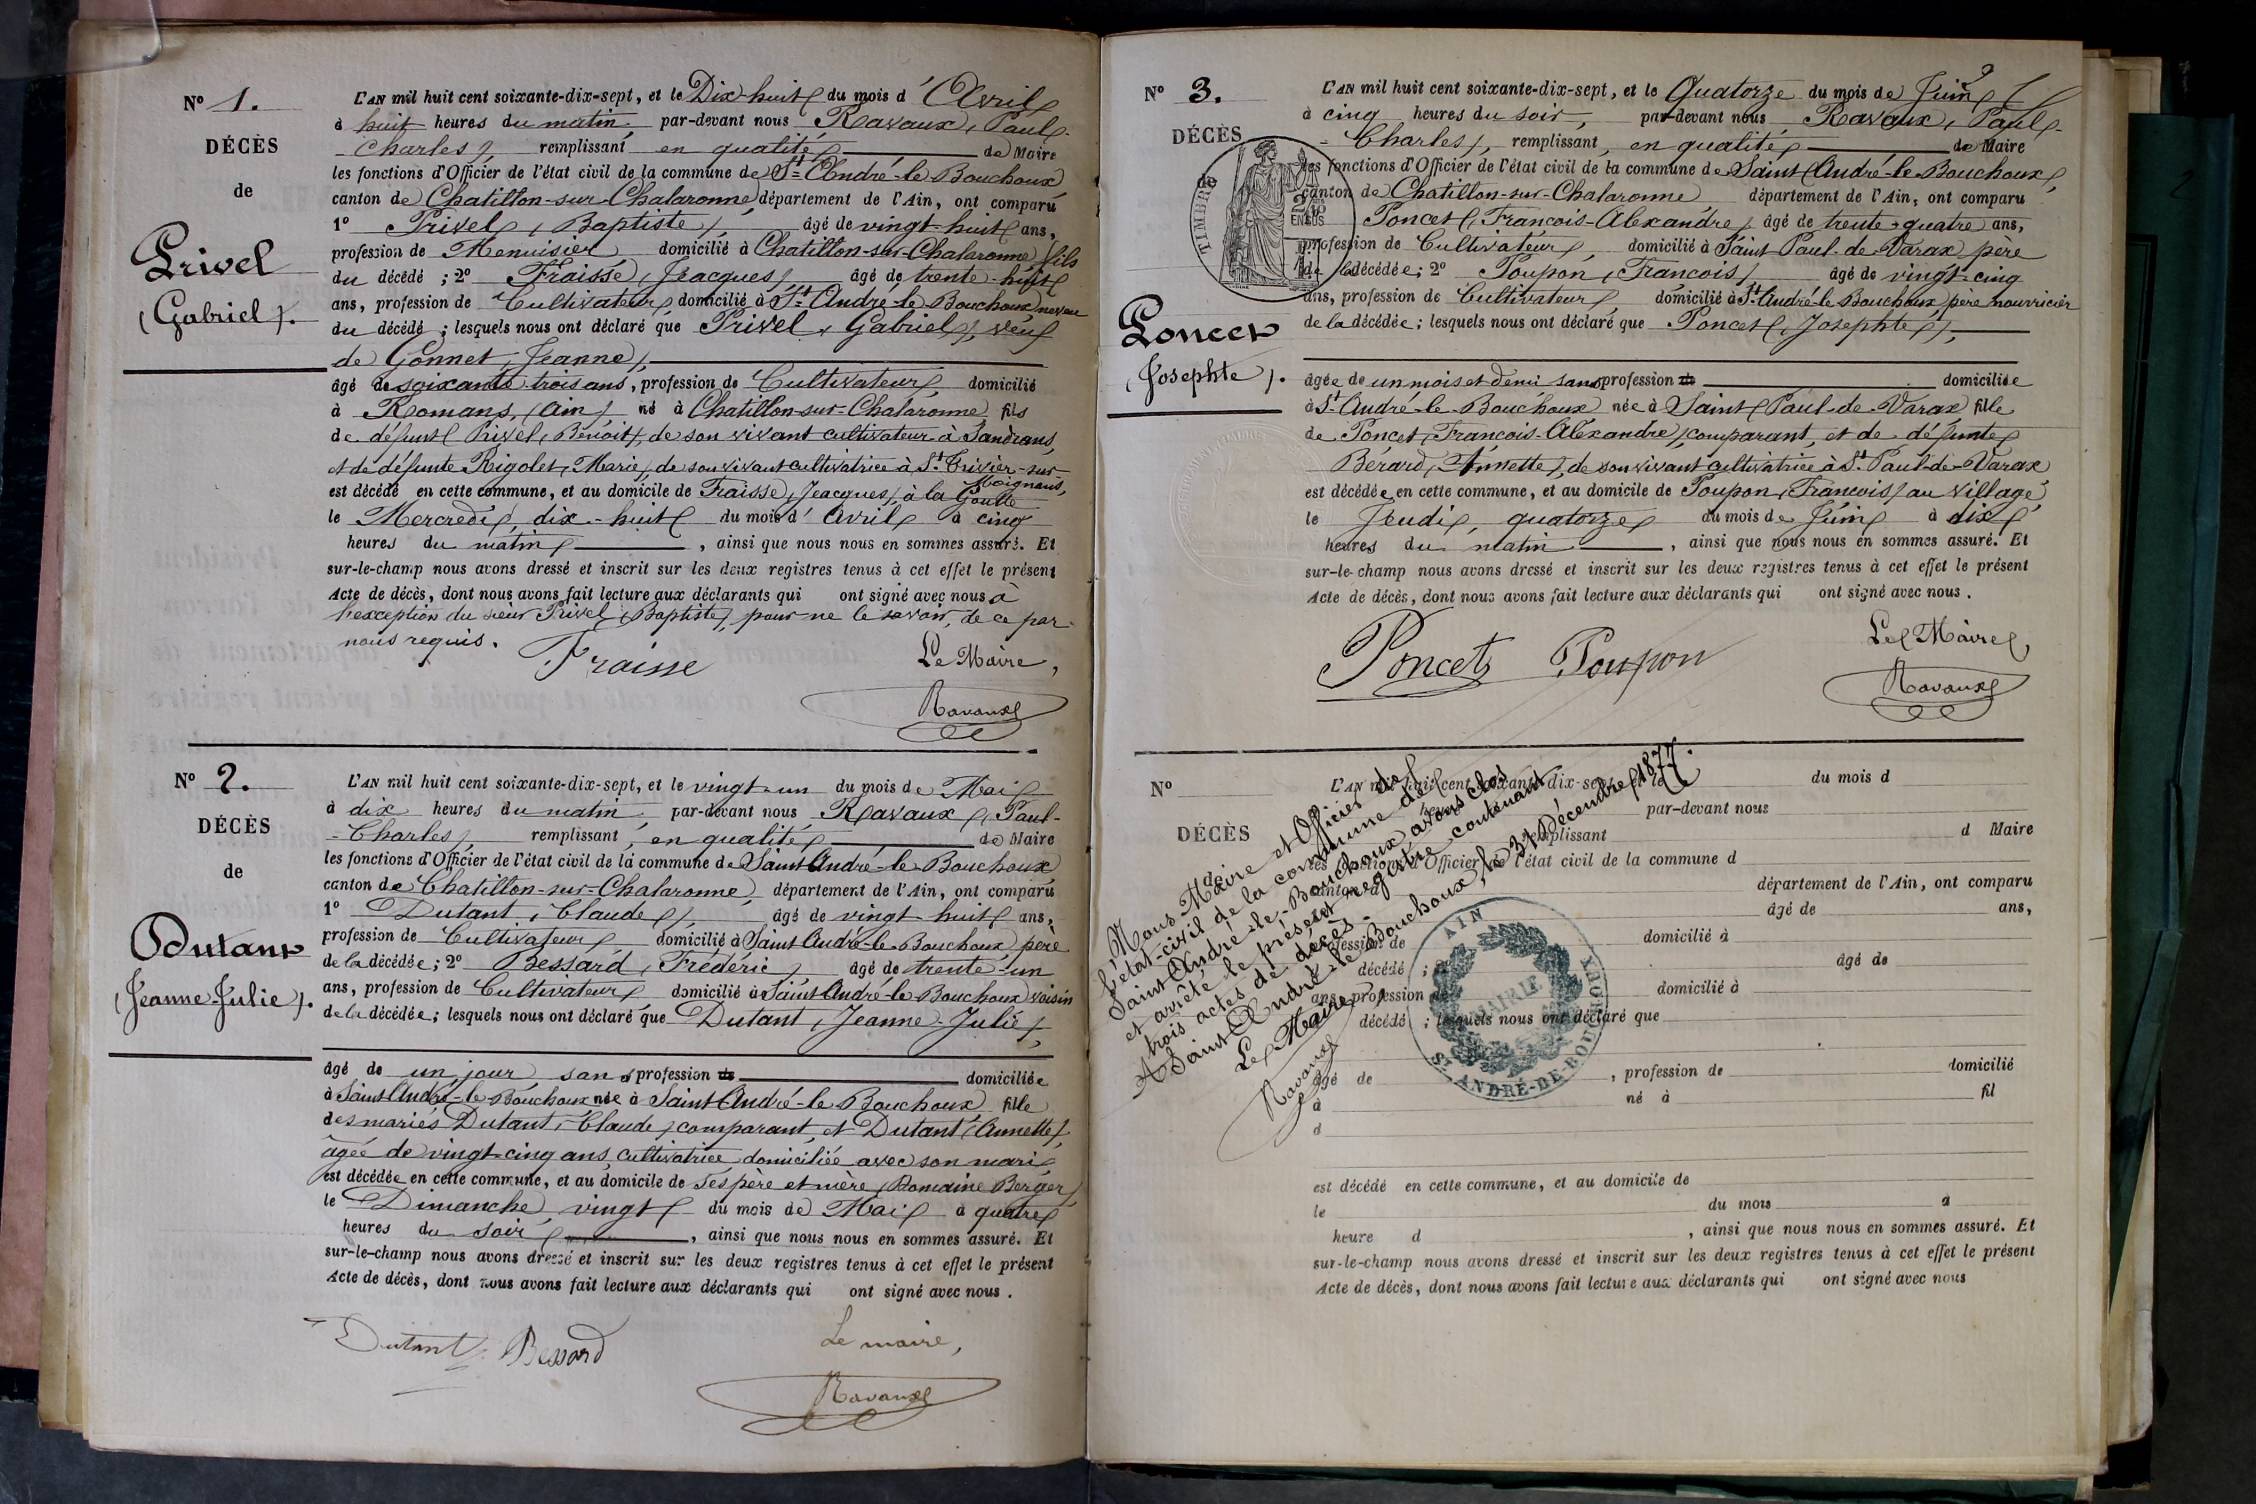 N° 1.
DÉCÈS
de
Privel
(Gabriel).
L'AN mil huit cent soixante-dix-sept, et le Dix huit du mois d'Avril
à huit heures du matin, par-devant nous Ravaux, Paul-
-Charles, remplissant en qualité de Maire
les fonctions d'Officier de l'état civil de la commune de St André-le-Bouchoux
canton de Chatillon-sur-Chalaronne, département de l'Ain, ont comparu
1° Privel, Baptiste, âgé de vingt-huit ans,
profession de Menuisier domicilié à Chatillon-sur-Chalaronne fils
du décédé ; 2° Fraisse, Jeacques, âgé de trente-huit
ans, profession de Cultivateur, domicilié à St André-le-Bouchoux neveu
du décédé ; lesquels nous ont déclaré que Privel, Gabriel, veuf
de Gonnet, Jeanne,
âgé de soixante trois ans, profession de Cultivateur, domicilié
à Romans, (Ain) né à Chatillon-sur-Chalaronne fils
de défunt Privel, Benoit, de son vivant cultivateur à Sandrans,
et de défunte Rigolet, Marie, de son vivant cultivatrice à St Trivier-sur-
Moignans,
est décédé en cette commune, et au domicile de Fraisse, Jeacques, à la Goutte
le Mercredi, dix-huit du mois d'Avril à cinq
heures du matin, ainsi que nous nous en sommes assuré. Et
sur-le-champ nous avons dressé et inscrit sur les deux registres tenus à cet effet le présent
Acte de décès, dont nous avons fait lecture aux déclarants qui ont signé avec nous à
l'exception du sieur Privel, Baptiste, pour ne le savoir, de ce par
nous requis.
Fraisse
Le Maire,
Ravaux
N° 2.
DÉCÈS
de
Dutant
(Jeanne-Julie).
L'AN mil huit cent soixante-dix-sept, et le vingt-un du mois de Mai
à dix heures du matin, par-devant nous Ravaux, Paul-
-Charles, remplissant, en qualité de Maire
les fonctions d'Officier de l'état civil de la commune de Saint André-le-Bouchoux
canton de Chatillon-sur-Chalaronne, département de l'Ain, ont comparu
1° Dutant, Claude, âgé de vingt-huit ans,
profession de Cultivateur, domicilié à Saint André-le-Bouchoux père
de la décédée ; 2° Bessard, Frédéric, âgé de trente-un
ans, profession de Cultivateur domicilié à Saint André-le-Bouchoux voisin
de la décédée ; lesquels nous ont déclaré que Dutant, Jeanne-Julie,
âgé de un jour, sans profession de domiciliée
à Saint André-le-Bouchoux née à Saint André-le-Bouchoux fille
des mariés Dutant, Claude, comparant, et Dutant, Annette,
âgée de vingt-cinq ans, cultivatrice, domiciliée avec son mari
est décédée en cette commune, et au domicile de ses père et mère, (Domaine Berger)
le Dimanche, vingt du mois de Mai à quatre
heures du soir, ainsi que nous nous en sommes assuré. Et
sur-le-champ nous avons dressé et inscrit sur les deux registres tenus à cet effet le présent
Acte de décès, dont nous avons fait lecture aux déclarants qui ont signé avec nous.
Dutant Bessard
Le maire,
Ravaux
2
N° 3.
DÉCÈS
de
TIMBRE
2/10
EN SUS
Poncet
(Josephte).
L'AN mil huit cent soixante-dix-sept, et le Quatorze du mois de Juin
à cinq heures du soir, par-devant nous Ravaux, Paul-
-Charles, remplissant, en qualité de Maire
les fonctions d'Officier de l'état civil de la commune de Saint André-le-Bouchoux,
canton de Chatillon-sur-Chalaronne département de l'Ain, ont comparu
Poncet, Francois-Alexandre, âgé de trente-quatre ans,
profession de Cultivateur, domicilié à Saint Paul-de-Varax père
de la décédée ; 2° Poupon, Francois, âgé de vingt-cinq
ans, profession de Cultivateur, domicilié à St André-le-Bouchoux, père nourricier
de la décédée ; lesquels nous ont déclaré que Poncet, Josephte,
âgée de un mois et demi sans profession de domiciliée
à St André-le-Bouchoux née à Saint Paul-de-Varax fille
de Poncet, Francois-Alexandre, comparant, et de défunte
Bérard, Annette, de son vivant cultivatrice à St Paul-de-Varax
est décédée en cette commune, et au domicile de Poupon, Francois, au village
le Jeudi, quatorze du mois de Juin à dix
heures du matin, ainsi que nous nous en sommes assuré. Et
sur-le-champ nous avons dressé et inscrit sur les deux registres tenus à cet effet le présent
Acte de décès, dont nous avons fait lecture aux déclarants qui ont signé avec nous.
Poncet Poupon
Le Maire,
Ravaux
N°
DÉCÈS
de
L'AN mil huit cent soixante-dix-sept, et le du mois d
heures par-devant nous
remplissant d Maire
les fonctions d'Officier de l'état civil de la commune d
canton d département de l'Ain, ont comparu
âgé de ans,
profession de domicilié à
décédé ; 2° âgé de
ans, profession de domicilié à
décédé ; lesquels nous ont déclaré que
âgé de , profession de domicilié
à né à fil
d
est décédé en cette commune, et au domicile de
le du mois à
heure d , ainsi que nous nous en sommes assuré. Et
sur-le-champ nous avons dressé et inscrit sur les deux registres tenus à cet effet le présent
Acte de décès, dont nous avons fait lecture aux déclarants qui ont signé avec nous
Nous Maire et Officier de
l'état-civil de la commune de
Saint André-le-Bouchoux avons clos
et arrêté le présent registre contenant
trois actes de décès.
A Saint André-le-Bouchoux, le 31 Décembre 1877.
Le Maire,
Ravaux
AIN
MAIRIE
ST ANDRÉ-DE-BOUCHOUX